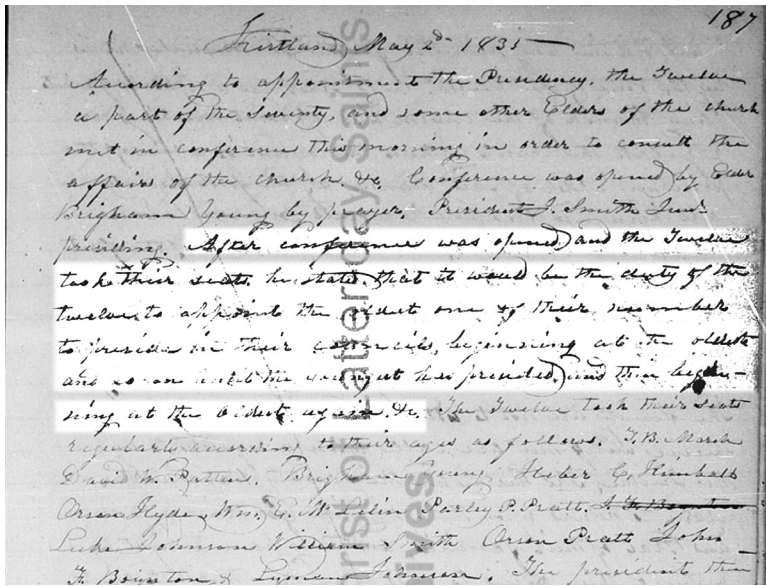 187
Kirtland May 2d 1835
According to appointment the Presidency, the Twelve
a part of the Seventy, and some other Elders of the church
met in conference this morning in order to consult the
affairs of the church &c. Conference was opened by Elder
Brigham Young by prayer, President J. Smith Junr
presiding. After conference was opened and the Twelve
took their seats, he stated that it would be the duty of the
twelve to appoint the oldest one of their number
to preside in their councils, beginning at the oldest
and so on until the youngest has presided and then begin-
ning at the oldest again. &c. The Twelve took their seats
regularly according to their ages as follows. T. B. Marsh
David W. Patten, Brigham Young Heber C. Kimball
Orson Hyde, Wm. E. McLelin Parley P. Pratt. J. F. Boynton
Luke Johnson William Smith Orson Pratt John
F. Boynton & Lyman Johnson. The president then
rist of Latter-day Saints
ives